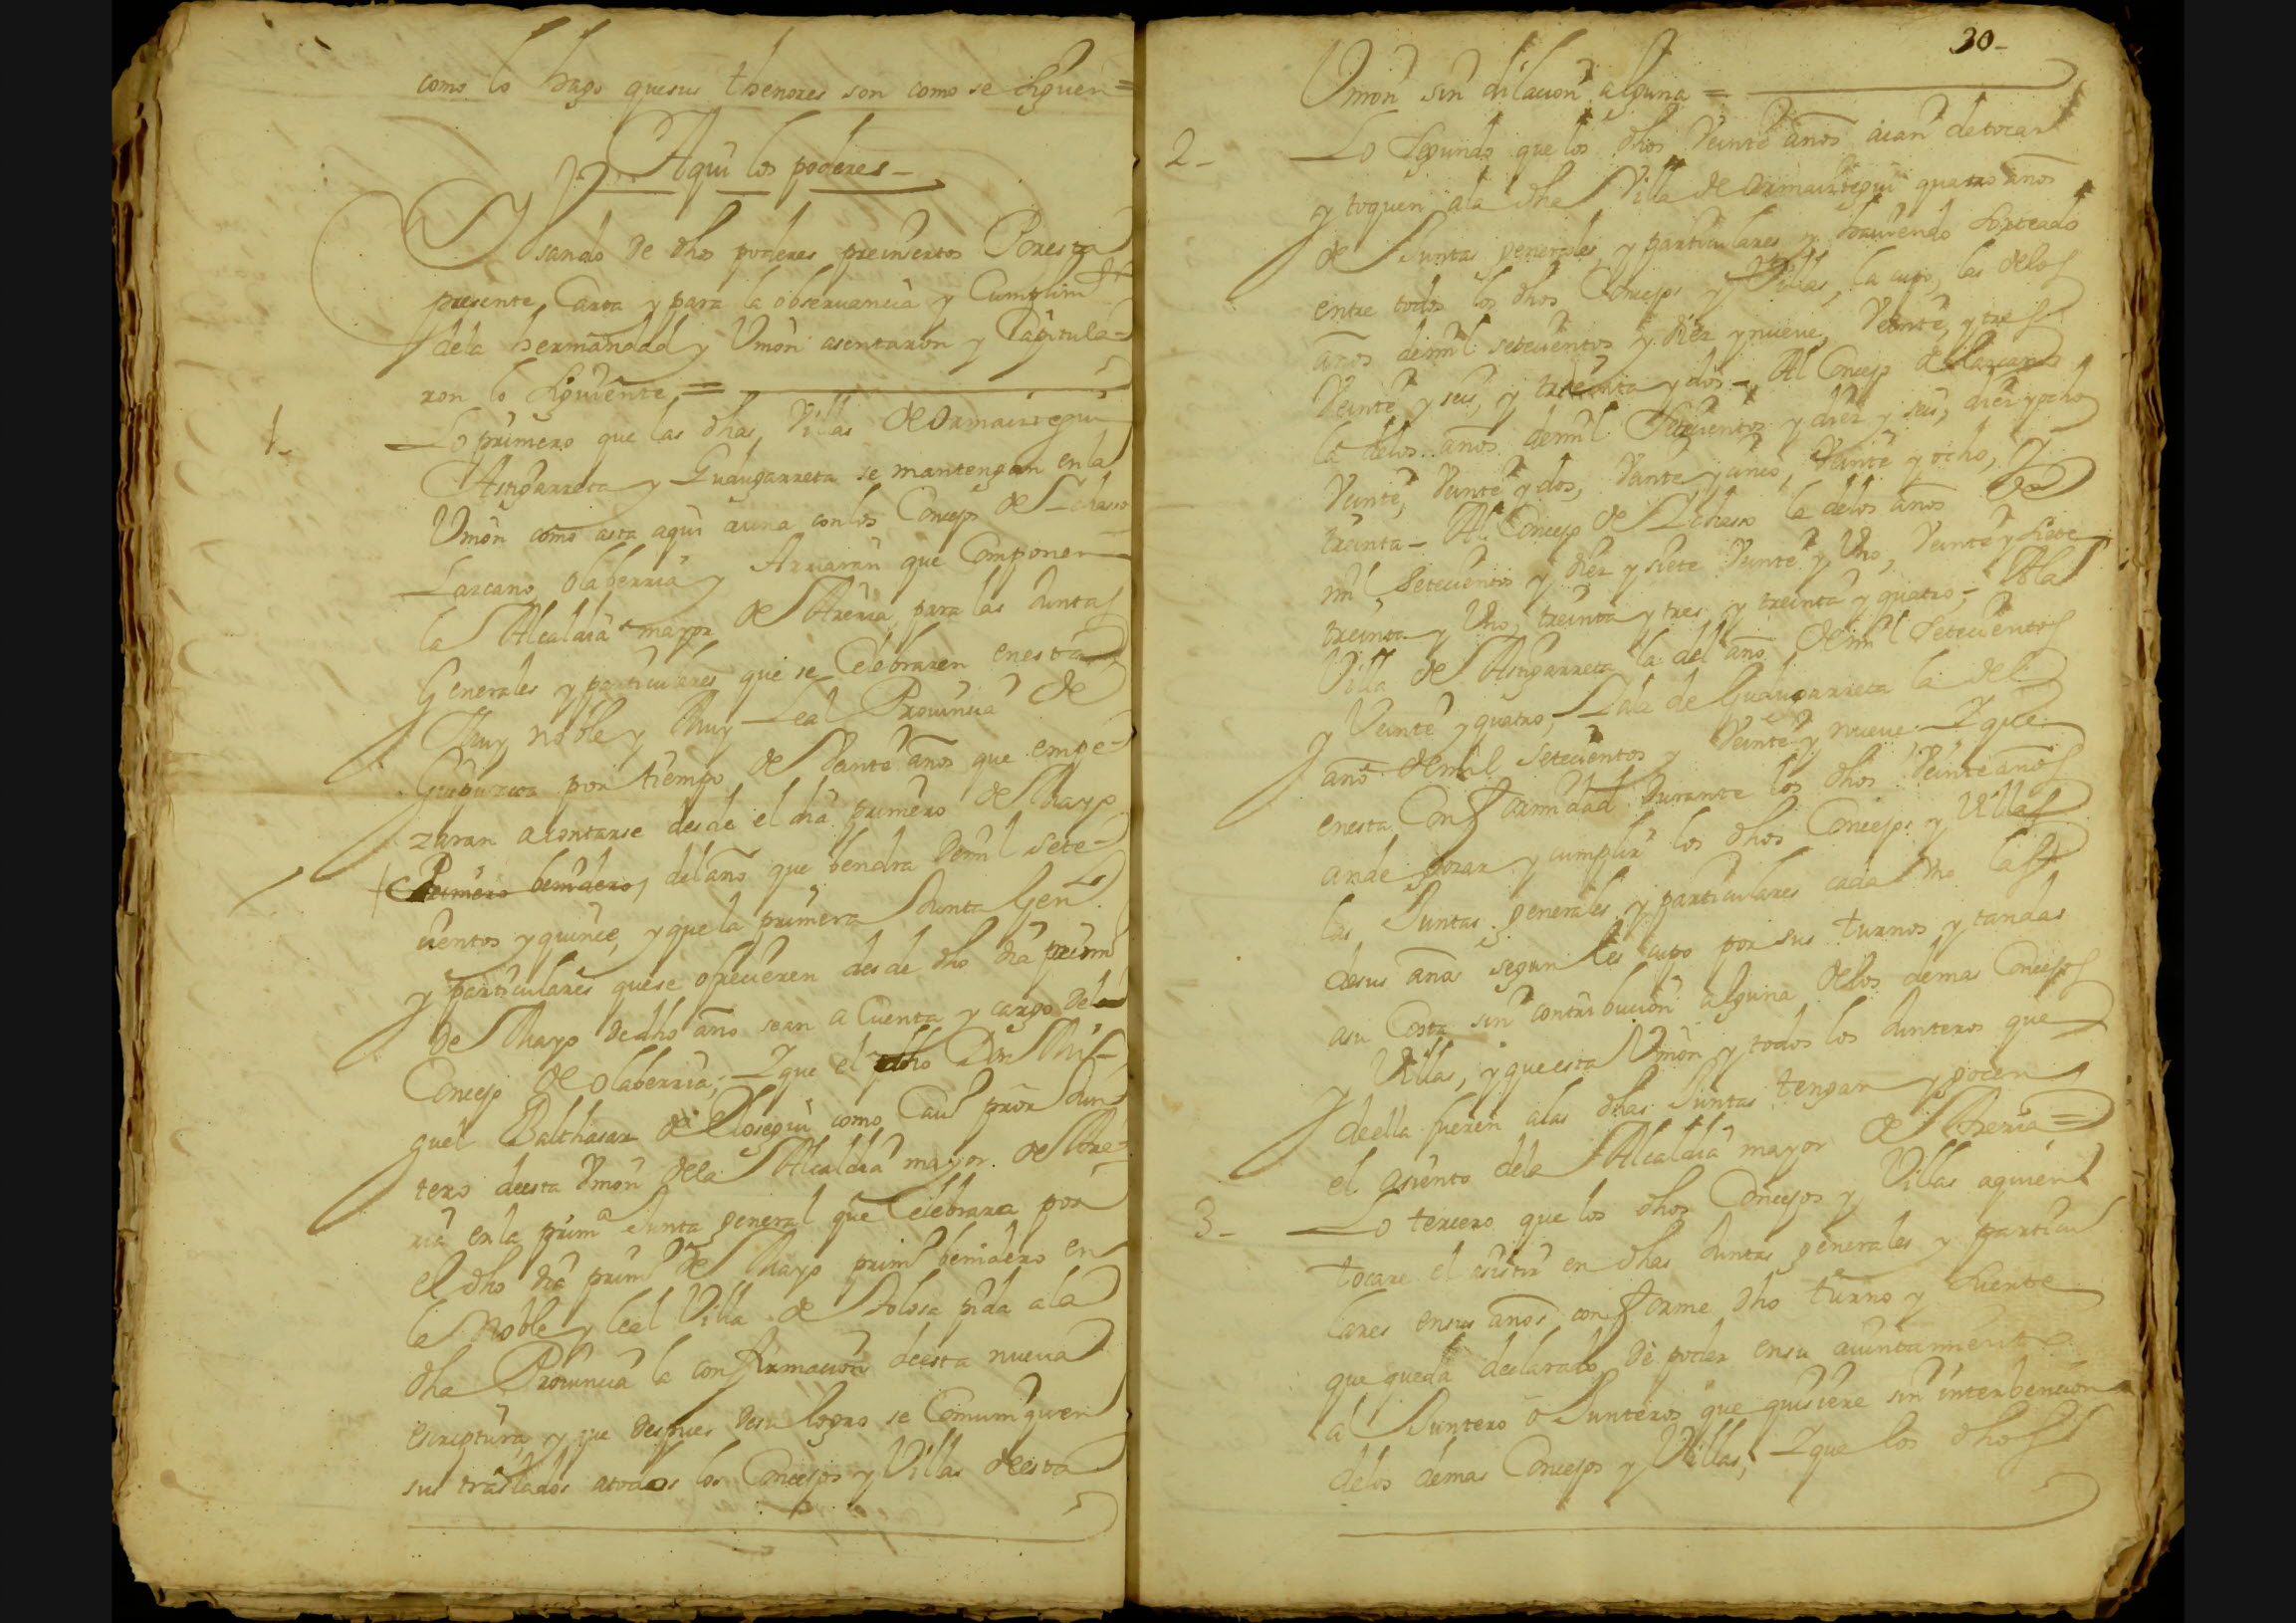 como lo hago que sus thenores son como se siguen =
Aqui los poderes -
Usando de dhos poderes preinsertos Por esta
presente Carta y para la observancia y Cumplimto
dela hermandad y Union asentaron y Capitula-
ron lo siguiente =
1- Lo primero que las dhas Villas de Ormaiztegui
Astigarreta y Gudugarreta se mantengan en la
Union como asta aqui auna con los Concejos de Ichaso
Lazcano Olaberria y Arriaran que Componen
la Alcaldia mayor de Areria para las Juntas
Generales y particulares que se Celebraren en esta
Muy noble y Muy Leal Provincia de
Guipuzcoa por tiempo de Veinte años que empe-
zaran a contarse desde el dia primero de Mayo
Primero benidero, del año que bendra de mil sete-
cientos y quince, y que la primera Junta Genl
y particulares que se ofrecieren desde dho dia primo
de Mayo de dho año sean a Cuenta y cargo del
Concejo de Olaberria; Y que el dho Don Mi-
guel Balthasar de Eloségui como Cavo prior Jun-
tero de esta Union dela Alcaldia mayor de Are-
ria en la prima Junta general que Celebrara por
el dho dia primo de Mayo primo benidero en
la Noble y leal Villa de Tolosa pida a la
dha Provincia la confirmacion de esta nueva
escriptura, y que despues de su logro se Comuniquen
sus traslados a todos los Concejos y Villas de esta
30-
Union sin dilacion alguna =
2- Lo segundo que los dhos Veinte años aian de tocar
y toquen ala dha Villa de Ormaiztegui quatro años
de Juntas generales, y particulares y haviendo sorteado
entre todos los dhos Concejos y Villas, la cupo, las de los
años de mil setecientos y diez y nueve, Veinte, y tres
Veinte y seis, y treinta y dos -, Al Concejo de Lazcano
la de los años de mil Setecientos y diez y seis, diez y ocho
Veinte, Veinte y dos, Veinte y cinco, Veinte y ocho, y
treinta - Al Concejo de Ichaso la de los años de
mil Setecientos y diez y siete Veinte y Uno, Veinte y siete
treinta y Uno, treinta y tres y treinta y quatro, - Ala
Villa de Astigarreta la del año de mil Setecientos
y Veinte y quatro, Y ala de Gudugarreta la del
año de mil setecientos y Veinte y nueve - Y que
en esta Conformidad durante los dhos Veinte años
ande gozar y cumplir los dhos Concejos y Villas
las Juntas generales y particulares cada Uno las
de sus años segun les cupo por sus turnos y tandas
asu Costa sin contribucion alguna de los demas Concejos
y Villas, y que esta Union y todos los Junteros que
de ella fueren alas dhas Juntas tengan y gocen
el asiento dela Alcaldia mayor de Areria =
3- Lo tercero que los dhos Concejos y Villas aquien
tocare el asistir en dhas Juntas generales y particu
lares en sus años conforme dho turno y suerte
que queda declarado, de poder en su aiuntamiento
al Juntero o Junteros que quisiere sin interbencion
de los demas Concejos y Villas, Y que los dhos